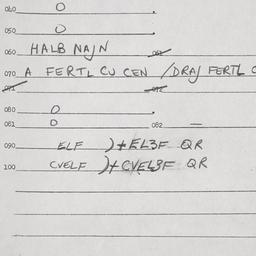 040 O
050 O
060 HALB NAJN 061
070 A FERTL CU CEN /DRAJ FERTL C
071 072
080 O
081 O 082 —
090 ELF )+EL3F QR
100 CVELF )+CVEL3F QR